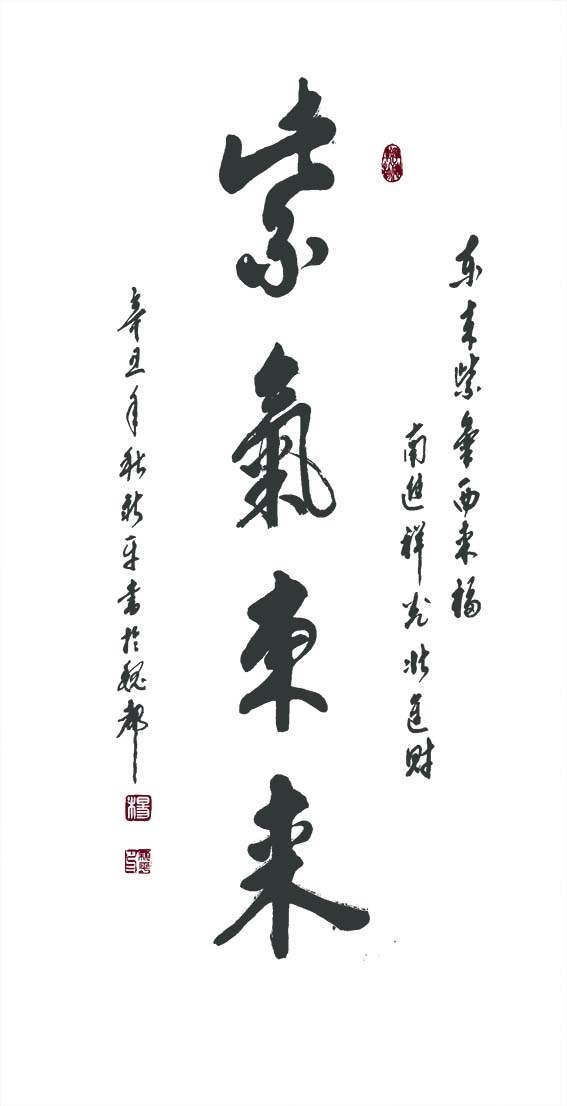 东来紫气西来福
南进祥光北进财
紫氣東来
辛丑年秋新平書於魏都